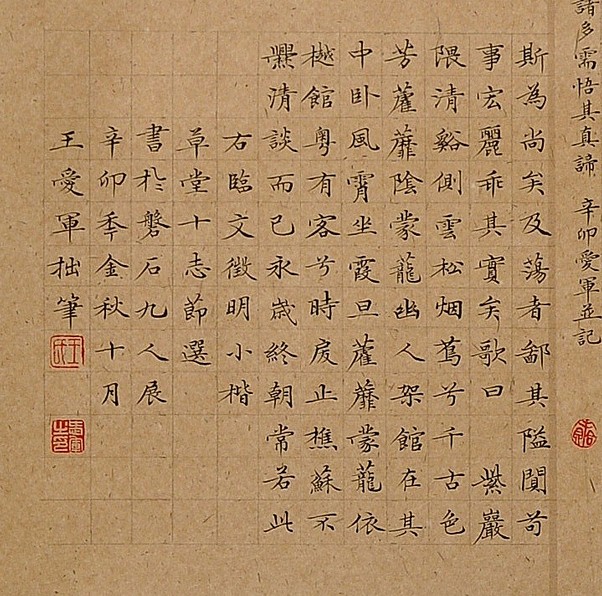 諸多需悟其真諦 辛卯愛軍並記
斯為尚矣及蕩者鄙其隘闃苟
事宏麗乖其實矣歌曰 紫巖
隈清谿側雲松烟蔦兮千古色
苦藿蘼陰蒙蘢幽人架館在其
中卧風霄坐霞旦藿蘼蒙蘢依
樾館粵有客兮時戾止樵蘇不
爨清談而已永歲終朝常若此
右臨文徵明小楷
草堂十志節選
書於磐石九人展
辛卯季金秋十月
王愛軍拙筆